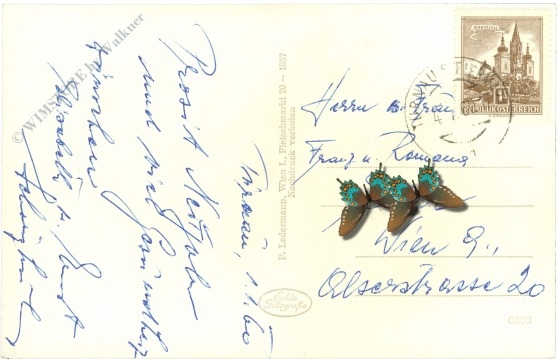 © WIMSTORE by Walkner
Prosit Neujahr
und viel Gesundheit
wünschen
Elisabeth u. Ernst
1.1.60
P. Ledermann, Wien I., Fleischmarkt 20 — 1957
Nachdruck verboten
Echte
Fotografie
REPUBLIK ÖSTERREICH
Herrn u. Frau
Franz u. Romana
Wien 9.,
Alserstrasse 20
6303